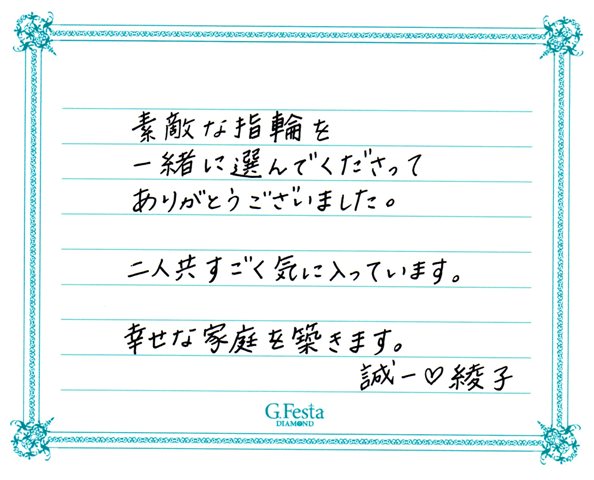 素敵な指輪を
一緒に選んでくださって
ありがとうございました。
二人共すごく気に入っています。
幸せな家庭を築きます。
誠一♡綾子
G.Festa
DIAMOND